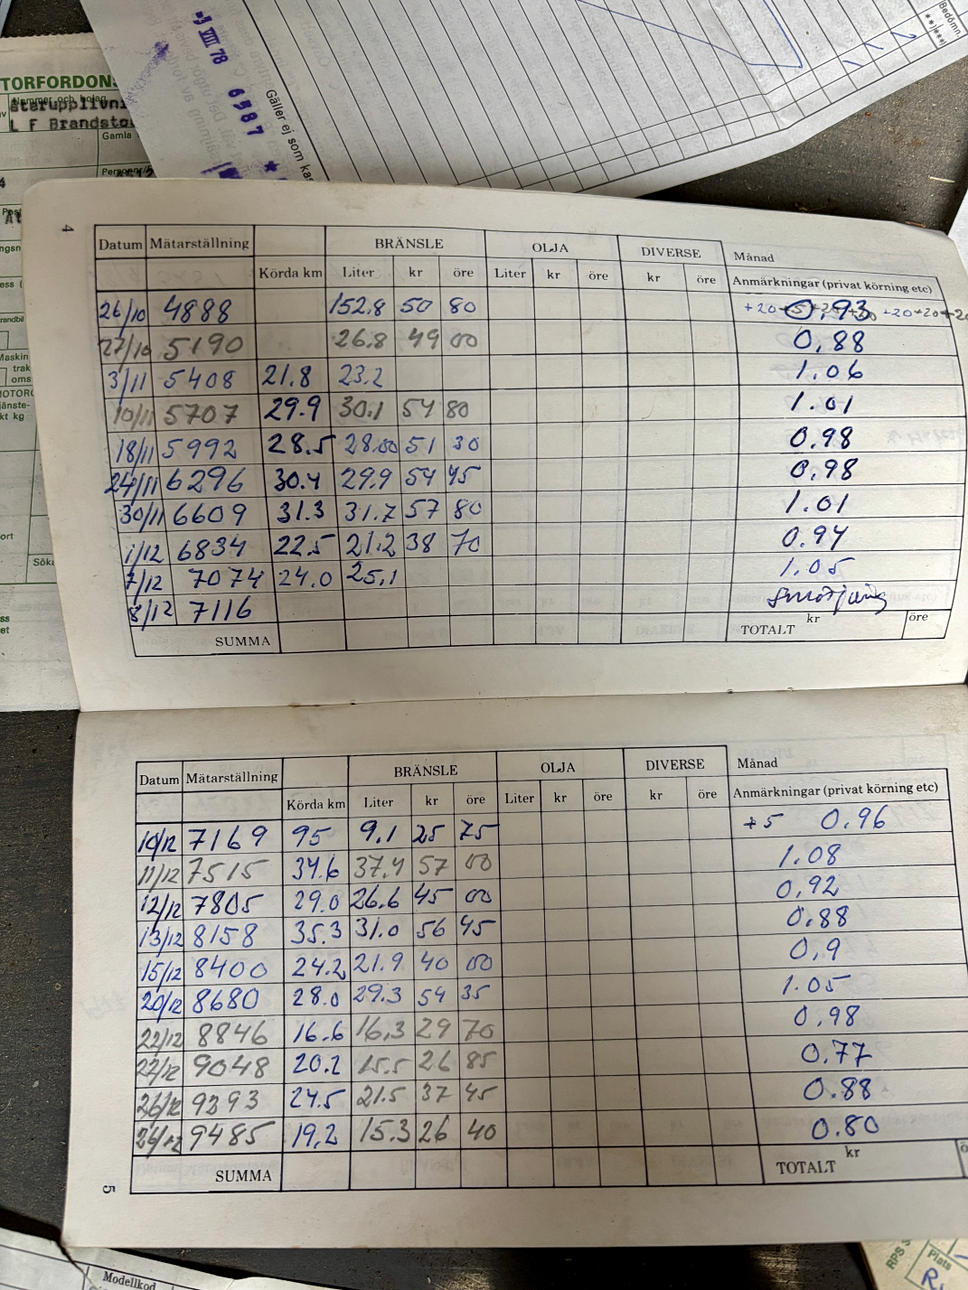 TORFORDON
Nummer och bolag
återupplivni
L F Brandsto
Gamla
-3 VIII 78 6987 *
Gäller ej som kas
Bedömn.
4
Datum Mätarställning BRÄNSLE OLJA DIVERSE Månad
Körda km Liter kr öre Liter kr öre kr öre Anmärkningar (privat körning etc)
26/10 4888 152,8 50 80 0,93
27/10 5190 26.8 49 00 0,88
3/11 5408 21.8 23.2 1.06
10/11 5707 29.9 30.1 54 80 1.01
18/11 5992 28.5 28.00 51 30 0.98
24/11 6296 30.4 29.9 54 45 0.98
30/11 6609 31.3 31.7 57 80 1.01
1/12 6834 22.5 21.2 38 70 0.94
7/12 7074 24.0 25,1 1.05
8/12 7116 Smörjning
SUMMA TOTALT kr öre
Datum Mätarställning BRÄNSLE OLJA DIVERSE Månad
Körda km Liter kr öre Liter kr öre kr öre Anmärkningar (privat körning etc)
10/12 7169 95 9.1 25 75 +5 0.96
11/12 7515 34.6 37.4 57 00 1.08
12/12 7805 29.0 26.6 45 00 0,92
13/12 8158 35.3 31.0 56 45 0.88
15/12 8400 24.2 21.9 40 00 0,9
20/12 8680 28.0 29.3 54 35 1.05
22/12 8846 16.6 16,3 29 70 0,98
22/12 9048 20.2 15.5 26 85 0.77
26/12 9293 24.5 21.5 37 45 0.88
26/12 9485 19,2 15.3 26 40 0.80
SUMMA TOTALT kr
5
Modellkod
RPS
Plats